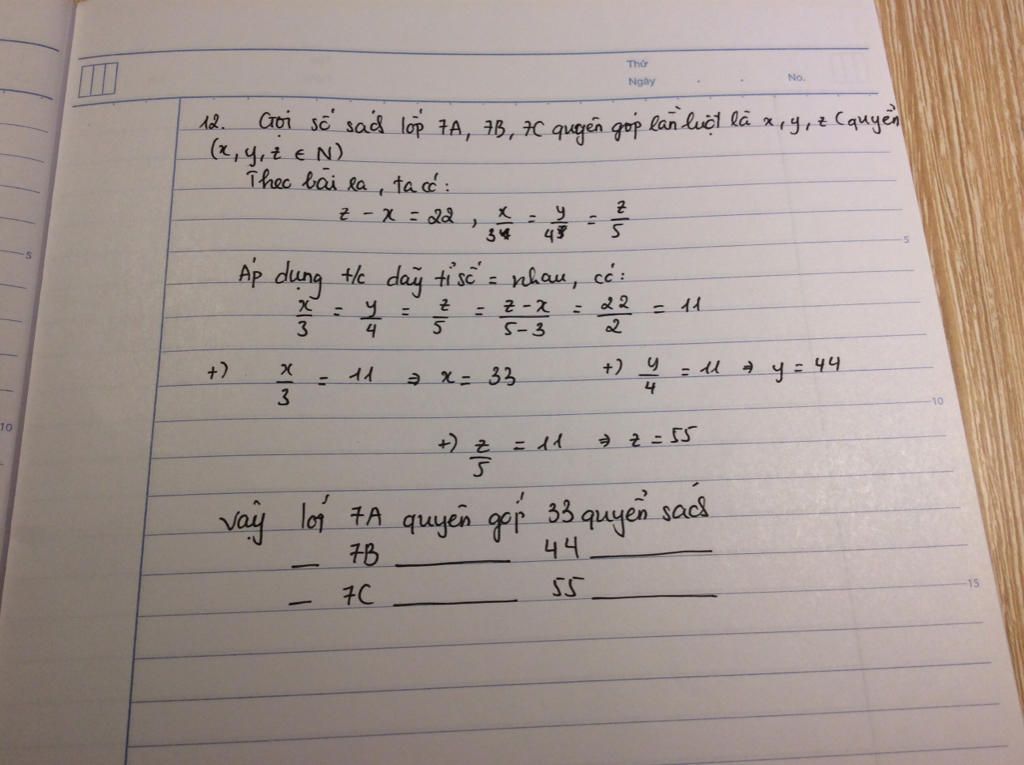 Thứ
Ngày . . No.
12. Gọi số sách lớp 7A, 7B, 7C quyên góp lần lượt là x, y, z (quyển
(x, y, z ∈ N)
Theo bài ra, ta có:
z - x = 22 , x/3 = y/4 = z/5
5
Áp dụng t/c dãy tỉ số = nhau, có:
x/3 = y/4 = z/5 = (z-x)/(5-3) = 22/2 = 11
+) x/3 = 11 ⇒ x = 33 +) y/4 = 11 ⇒ y = 44
10
+) z/5 = 11 ⇒ z = 55
Vậy lớp 7A quyên góp 33 quyển sách
— 7B —— 44 ——
— 7C —— 55 ——
15
5
10